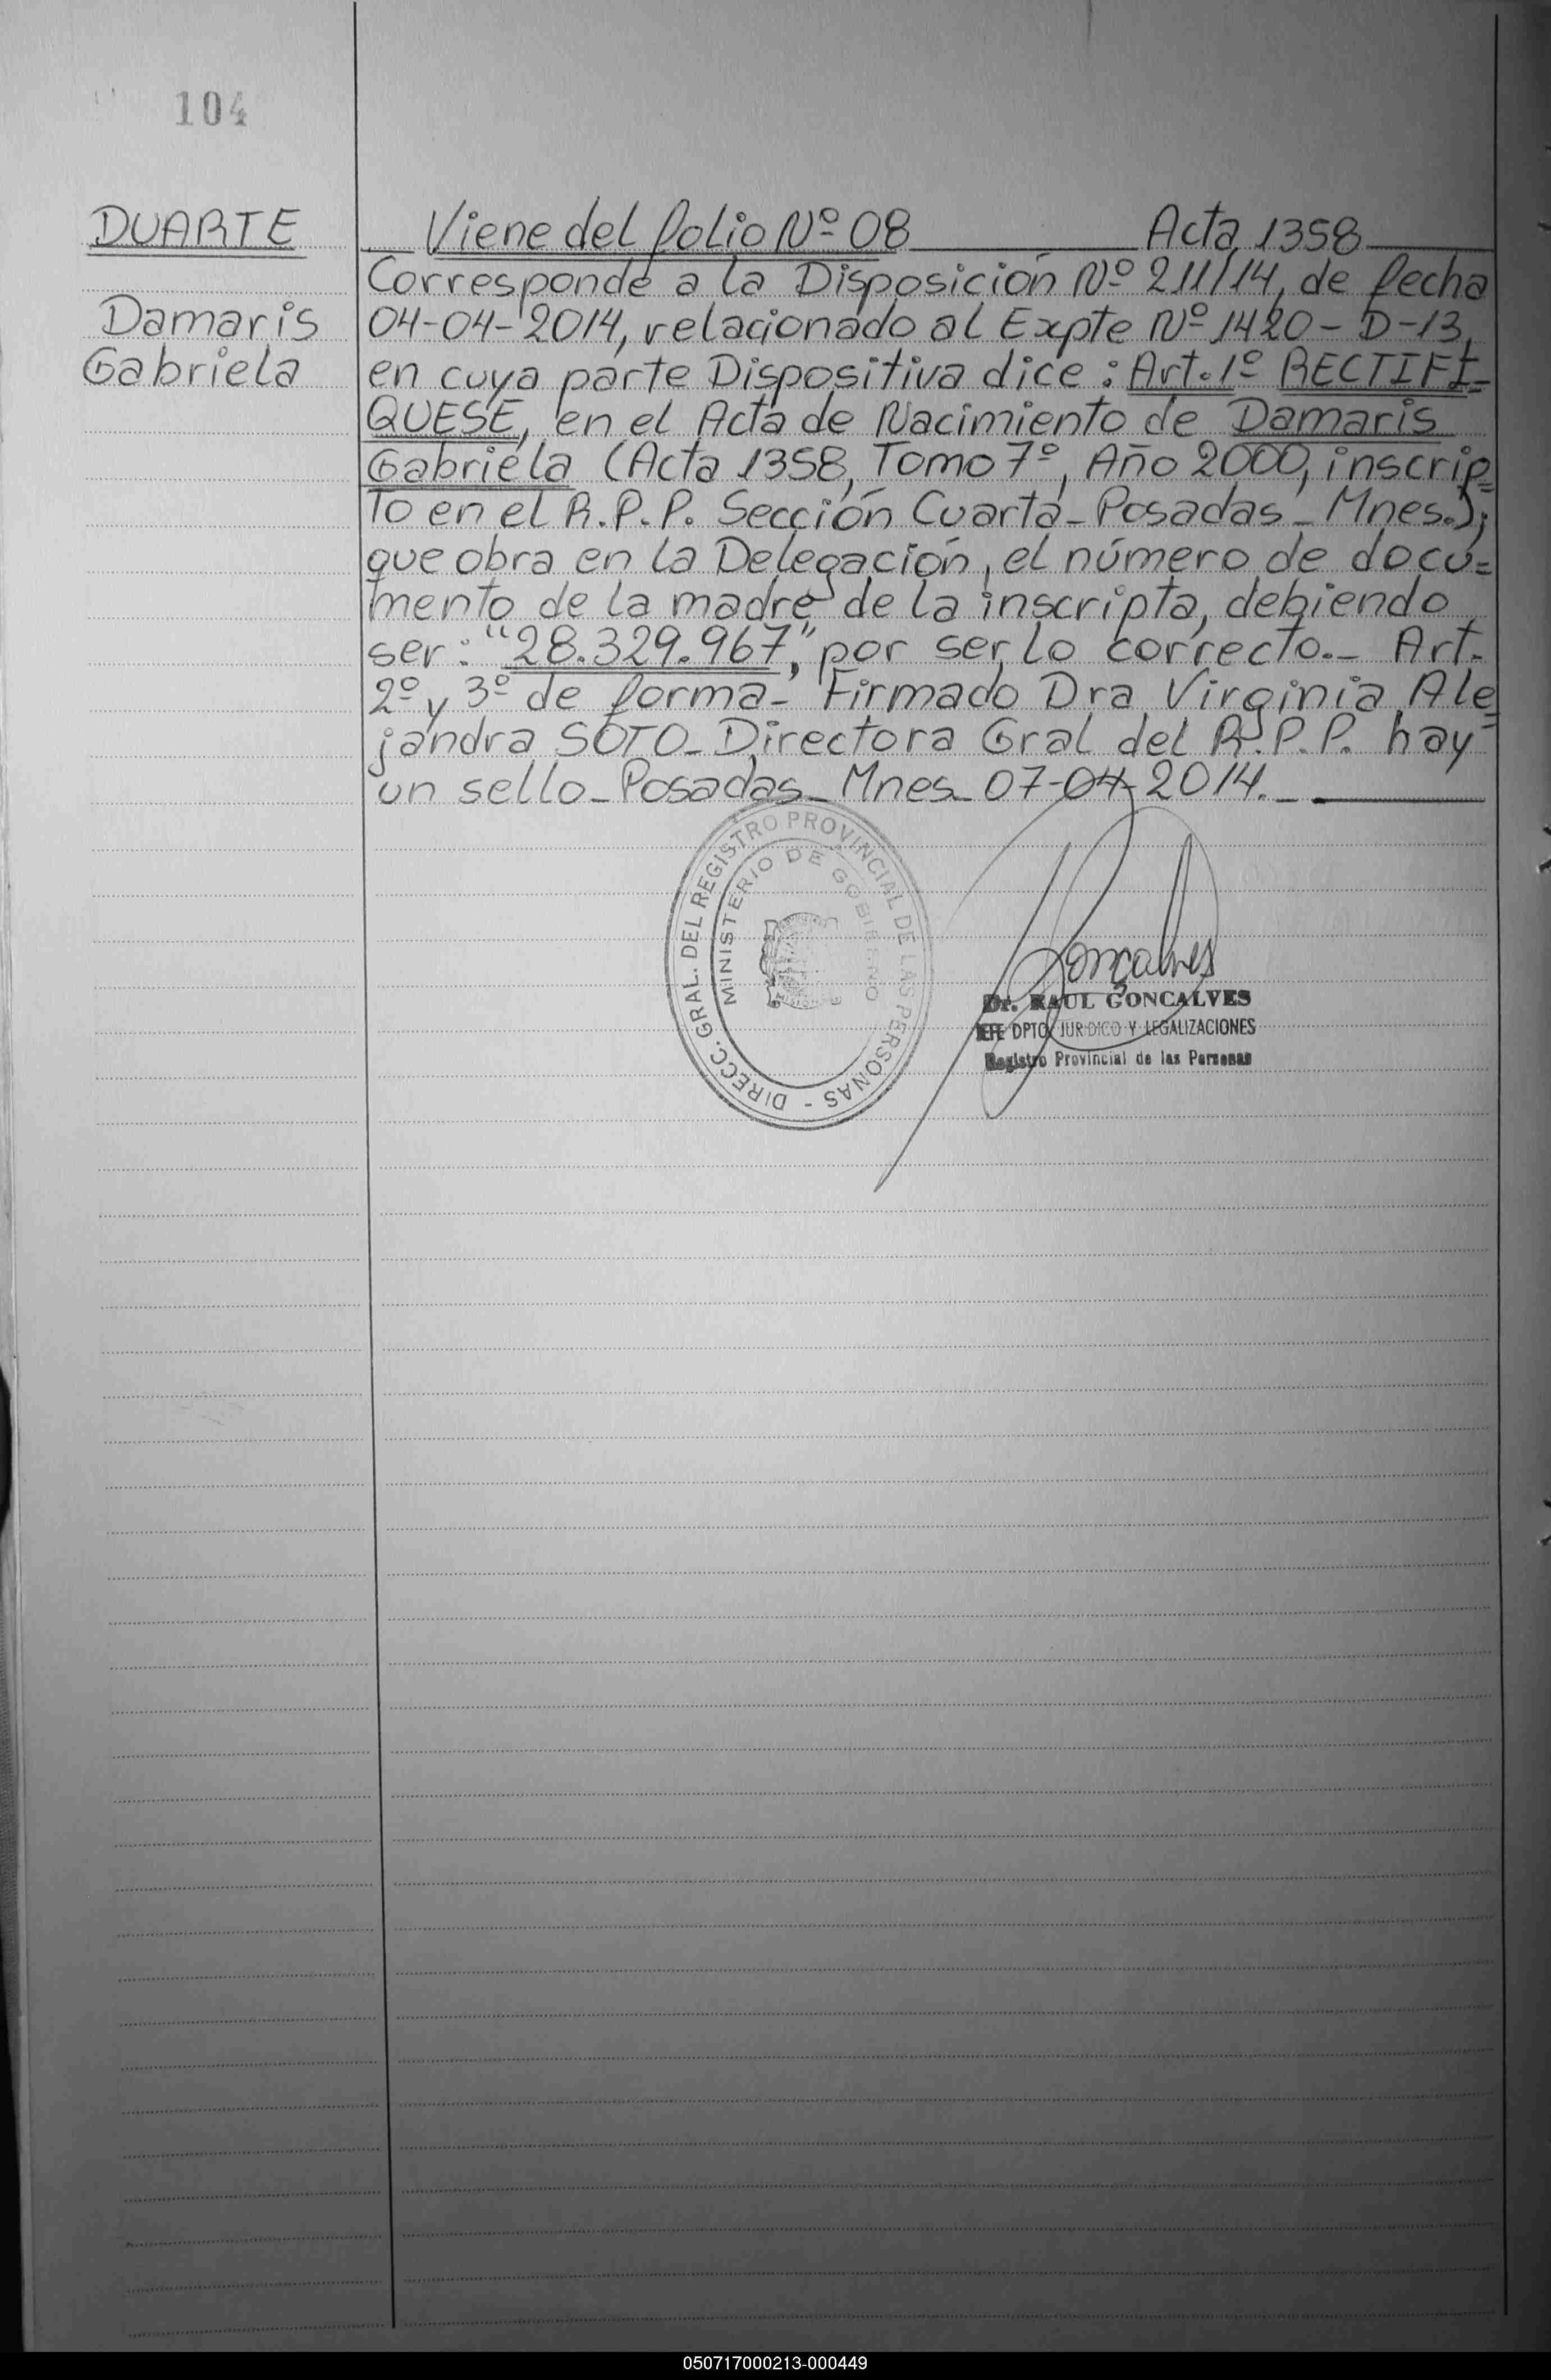 104
DUARTE
Damaris
Gabriela
Viene del folio Nº 08 Acta 1358
Corresponde a la Disposición Nº 211/14, de fecha
04-04-2014, relacionado al Expte Nº 1420-D-13,
en cuya parte Dispositiva dice: Art. 1º RECTIFI=
QUESE, en el Acta de Nacimiento de Damaris
Gabriela (Acta 1358, Tomo 7º, Año 2000, inscrip=
to en el R.P.P. Sección Cuarta_Posadas_Mnes.);
que obra en la Delegación, el número de docu=
mento de la madre de la inscripta, debiendo
ser: "28.329.967," por ser lo correcto._ Art.
2º y 3º de forma- Firmado Dra Virginia Ale=
jandra SOTO_Directora Gral del R.P.P. hay
un sello_Posadas_Mnes_07-04-2014._
DIRECC. GRAL. DEL REGISTRO PROVINCIAL DE LAS PERSONAS -
MINISTERIO DE GOBIERNO
Gonçalves
Dr. RAUL GONCALVES
JEFE DPTO JURIDICO Y LEGALIZACIONES
Registro Provincial de las Personas
050717000213-000449